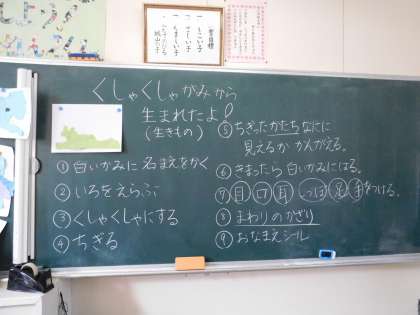 くしゃくしゃがみから
生まれたよ!
(生きもの)
①白いかみに名まえをかく
②いろをえらぶ
③くしゃくしゃにする
④ちぎる
⑤ちぎったかたちなにに
見えるか かんがえる。
⑥きまったら白いかみにはる。
⑦目口耳 つばさ足手をつける。
⑧まわりのかざり
⑨おなまえシール